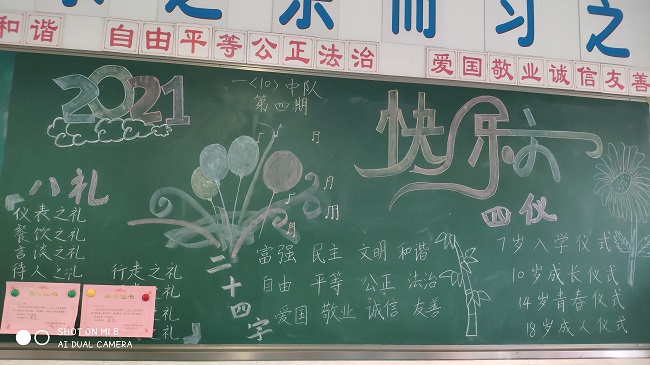 乐之乐而习之
和谐 自由平等公正法治 爱国敬业诚信友善
2021
一〈10〉中队
第四期
快乐六
八礼
仪表之礼
餐饮之礼
言谈之礼
待人之礼
行走之礼
之礼
之礼
之礼
二十四字
富强 民主 文明 和谐
自由 平等 公正 法治
爱国 敬业 诚信 友善
四仪
7岁入学仪式
10岁成长仪式
14岁青春仪式
18岁成人仪式
SHOT ON MI 8
AI DUAL CAMERA